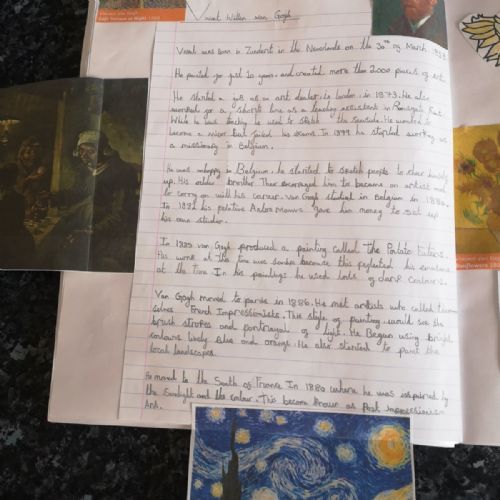 Vincent Willem van Gogh
Vincent was born in Zundert in the Netherlands on the 30th of March 1853
He painted for just 10 years and created more than 2000 pieces of art.
He started a job as an art dealer in London in 1873. He also
worked for a short time as a teaching assistant in Ramsgate Kent.
While he was teaching he used to sketch the seaside. He wanted to
become a but failed his exams. In 1879 he started working as
a missionary in Belgium.
He was unhappy in Belgium, he started to sketch people to cheer himself
up. His older brother Theo encouraged him to become an artist and
to carry on with his career. van Gogh studied in Belgium in 1880.
In 1882 his relative Anton Mauve gave him money to set up
his own studio.
In 1885 van Gogh produced a painting called The Potato Eaters.
His work at the time was because this reflected his emotions
at the time. In his paintings he used lots of dark colours.
Van Gogh moved to in 1886. He met artists who called themselves
selves French Impressionists. This style of painting would see the
brush strokes and portrayal of light. He Began using bright
colours likely blue and orange. He also started to paint the
local landscapes.
He moved to the South of France In 188 where he was inspired by
the Sunlight and the colour. This became known as Post Impressionism
Art.